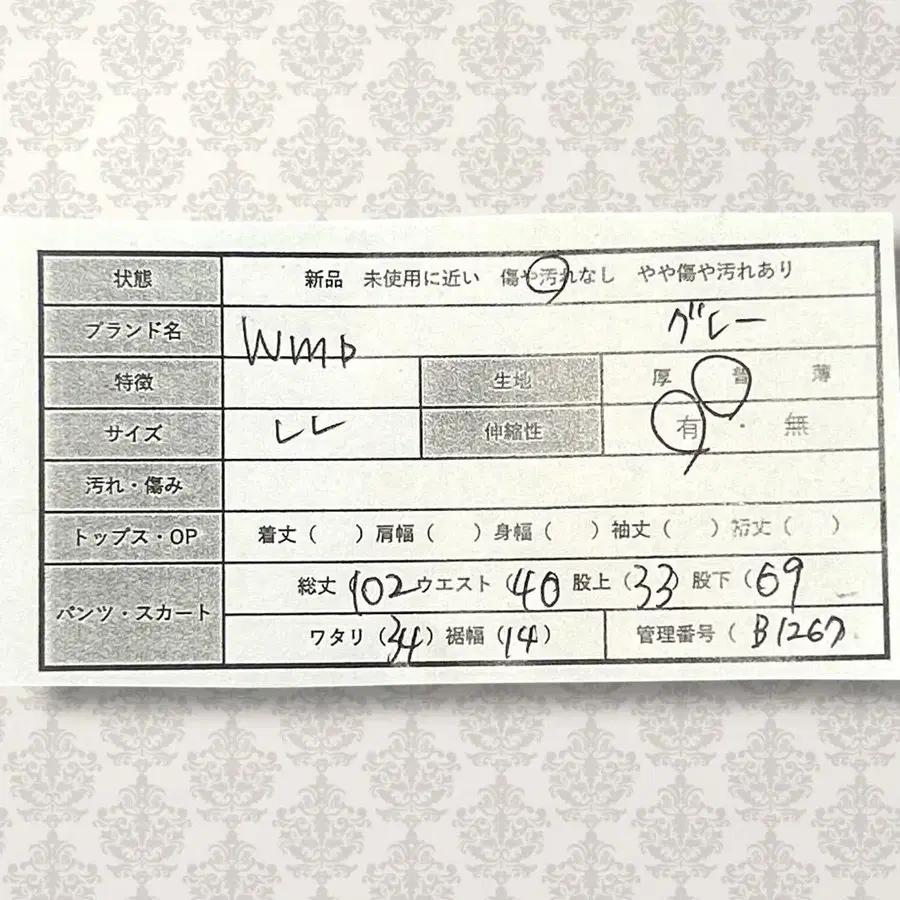 状態 新品 未使用に近い 傷や汚れなし やや傷や汚れあり
ブランド名 WMD グレー
特徴 生地 厚 普 薄
サイズ LL 伸縮性 有 ・ 無
汚れ・傷み
トップス・OP 着丈 ( ) 肩幅 ( ) 身幅 ( ) 袖丈 ( ) 裄丈 ( )
パンツ・スカート 総丈 (102 ウエスト (40 股上 (33) 股下 (69
ワタリ (34) 裾幅 (14) 管理番号 ( B1267)